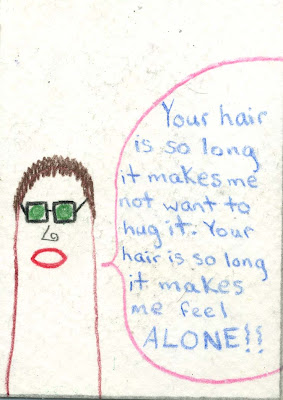 Your hair
is so long
it makes me
not want to
hug it. Your
hair is so long
it makes
me feel
ALONE!!